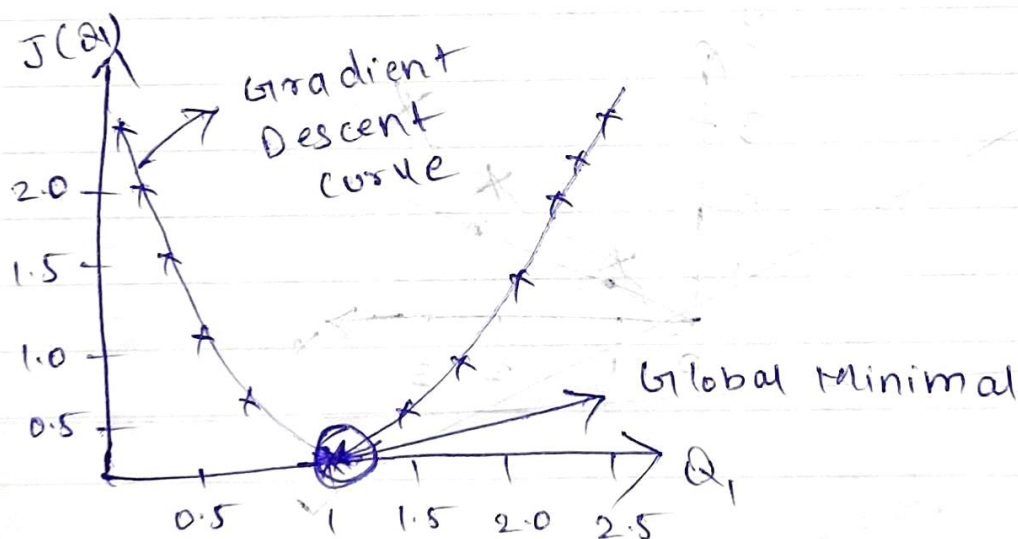 J(Q1)
Gradient
Descent
Curve
2.0
1.5
1.0
0.5
Global Minimal
Q1
0.5
1
1.5
2.0
2.5